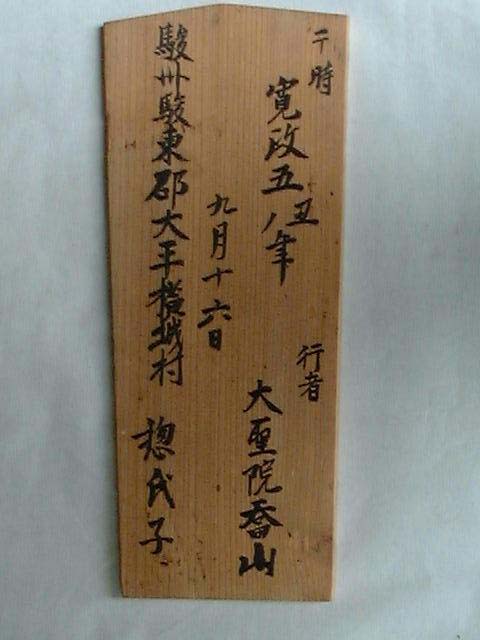 干時
寛政五丑ノ年
九月十六日
行者
大聖院喬山
駿州駿東郡大平横城村
惣氏子